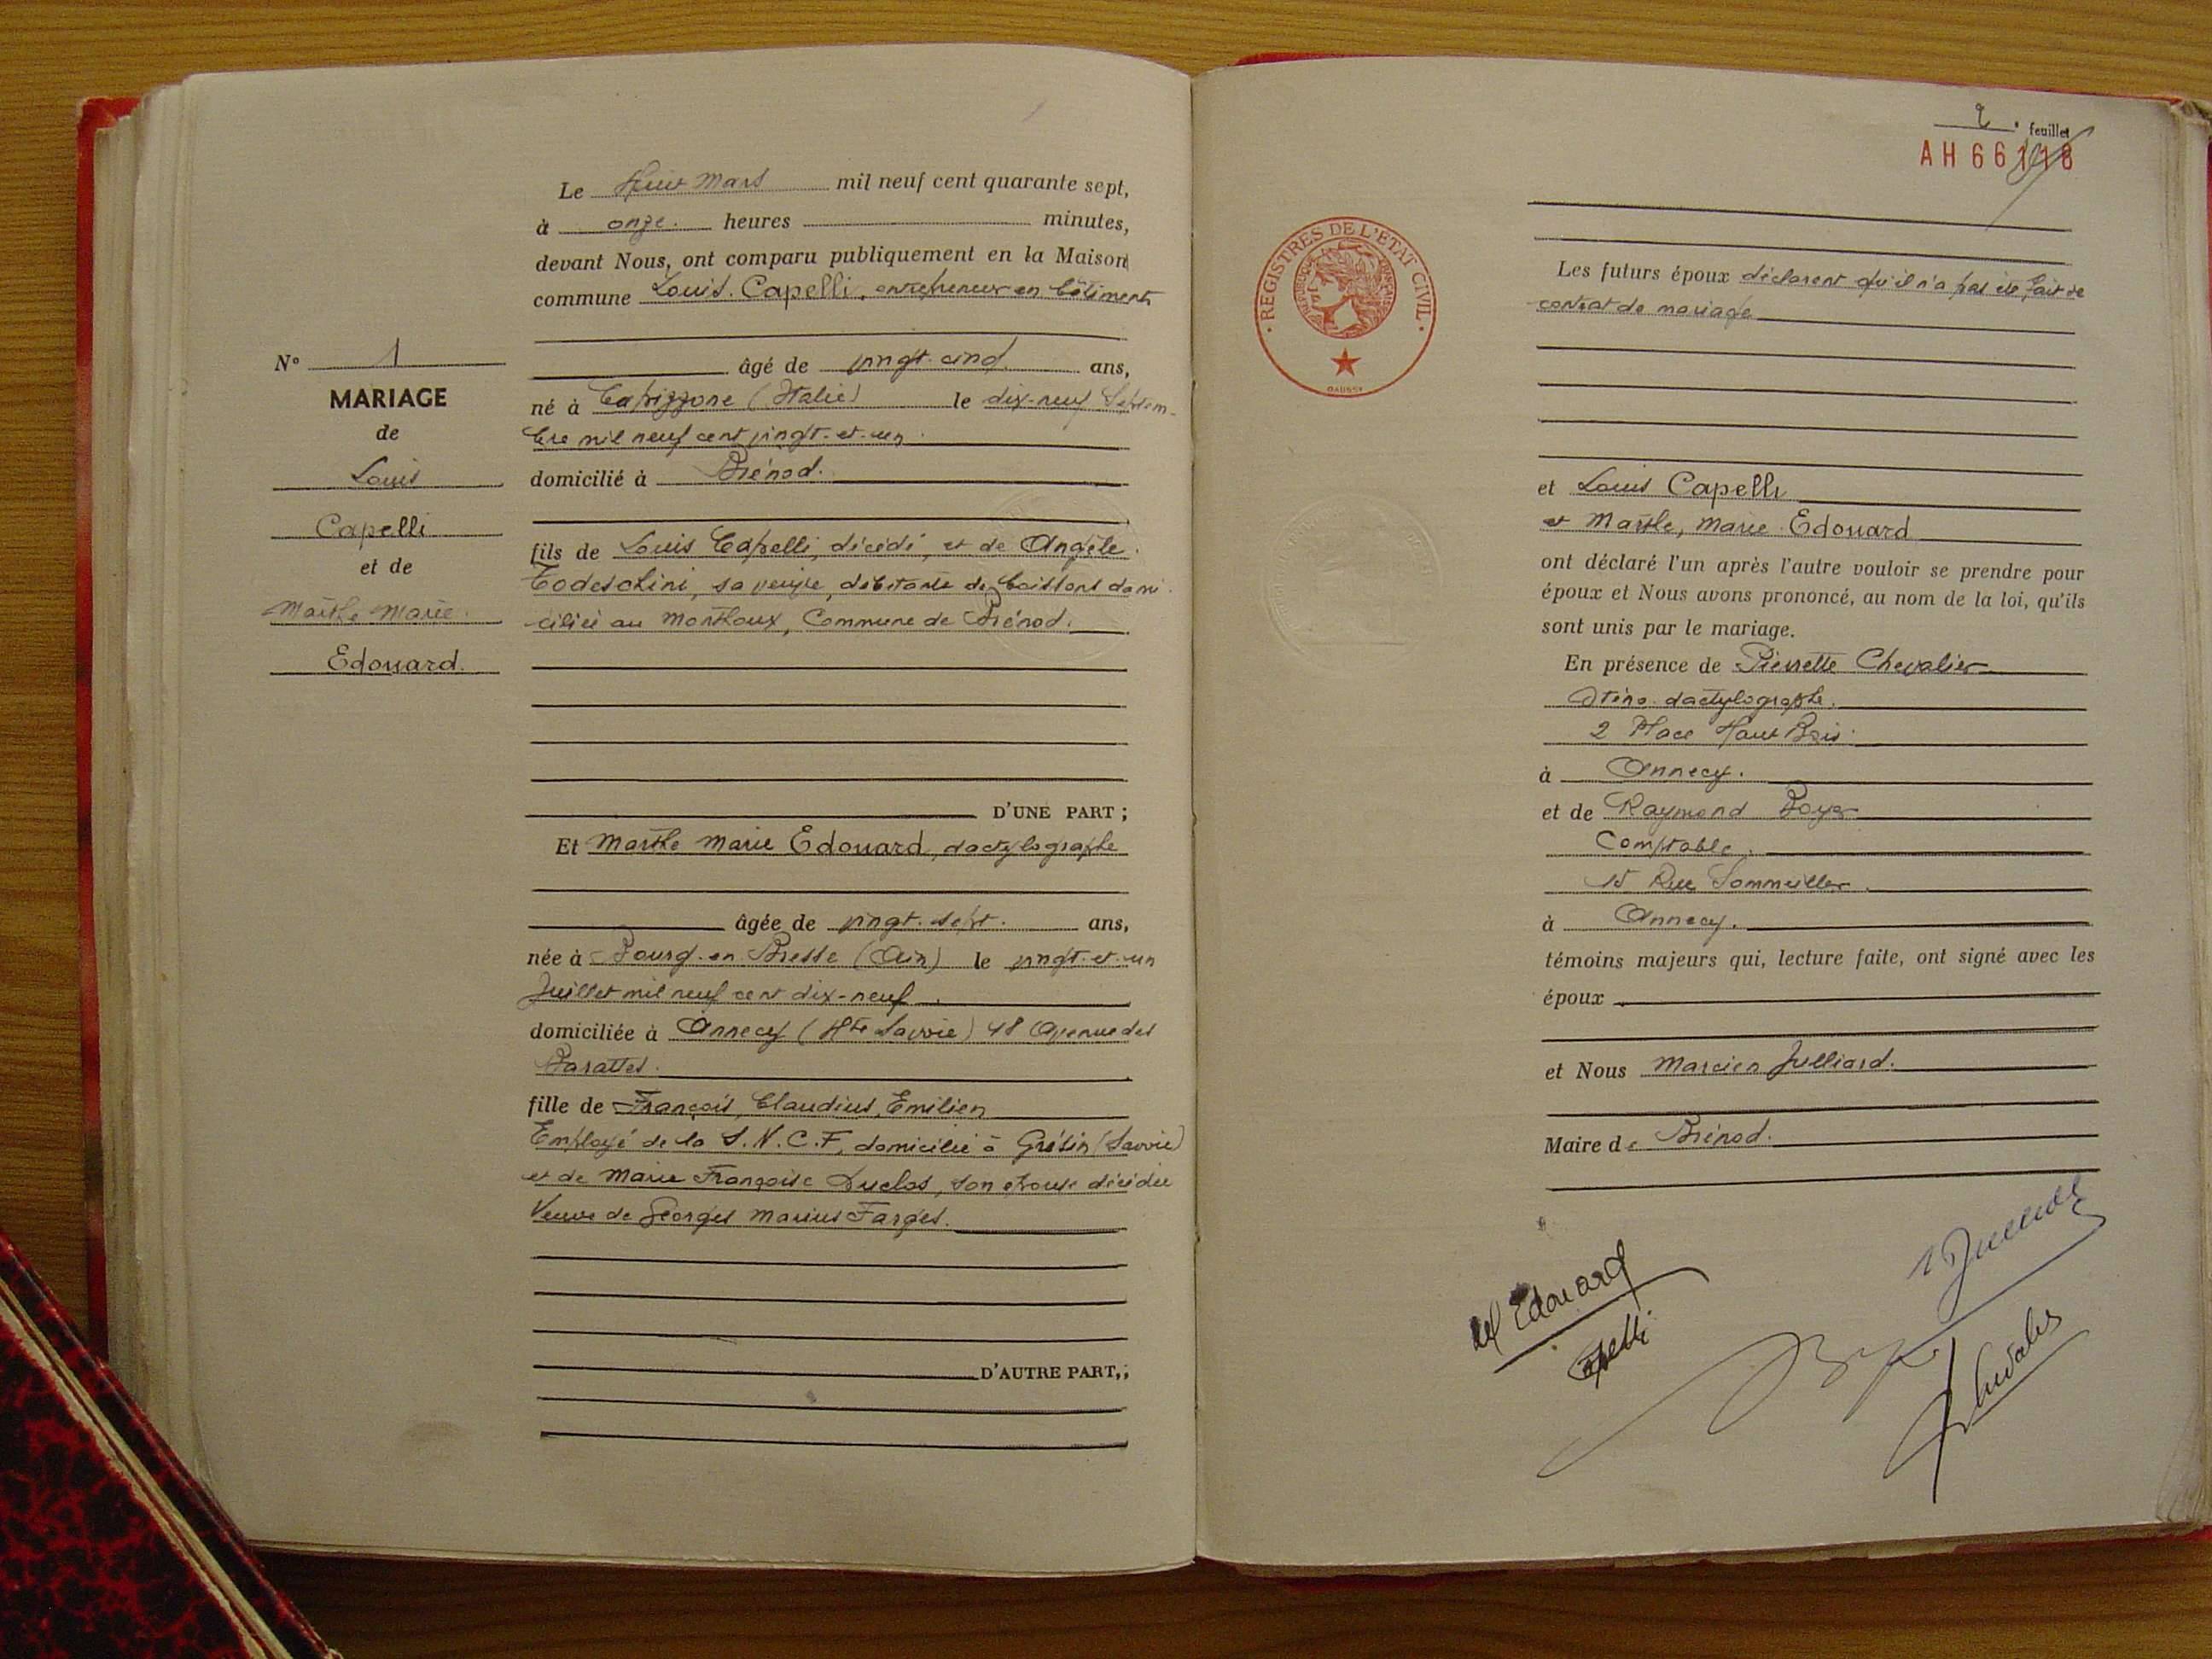 Le Huit Mars mil neuf cent quarante sept,
à onze heures minutes,
devant Nous, ont comparu publiquement en la Maison
commune Louis Capelli, entrepreneur en bâtiments
N° 1
MARIAGE
de
Louis
Capelli
et de
Marthe Marie
Edouard.
âgé de vingt-cinq ans,
né à Caprizzone (Italie) le dix-neuf Septem-
bre mil neuf cent vingt-et-un
domicilié à Brénod.
fils de Louis Capelli, décédé, et de Angèle
Todeschini, sa veuve, débitante de boissons domi
ciliée au Monthoux, Commune de Brénod.
D'UNE PART ;
Et Marthe Marie Edouard, dactylographe
âgée de vingt-sept. ans,
née à Bourg-en-Bresse (Ain) le vingt-et-un
Juillet mil neuf cent dix-neuf
domiciliée à Annecy (Hte Savoie) 48 Avenue des
Barattes.
fille de François, Claudius, Emilien
Employé de la S.N.C.F, domicilié à Grésin (Savoie)
et de Marie Françoise Duclos, son épouse décédée
Veuve de Georges Marius Farges.
D'AUTRE PART,;
2 e feuillet
AH 66118
REGISTRES DE L'ETAT CIVIL
REPUBLIQUE FRANÇAISE
DAUSSY
Les futurs époux déclarent qu'il n'a pas été fait de
contrat de mariage
et Louis Capelli
et Marthe, Marie Edouard
ont déclaré l'un après l'autre vouloir se prendre pour
époux et Nous avons prononcé, au nom de la loi, qu'ils
sont unis par le mariage.
En présence de Pierrette Chevalier
Sténo-dactylographe.
2 Place Haut Bois
à Annecy.
et de Raymond Boyer
Comptable.
15 Rue Sommeiller.
à Annecy.
témoins majeurs qui, lecture faite, ont signé avec les
époux
et Nous Marcien Julliard.
Maire de Brénod.
M Edouard
Capelli
Julliard
Chevalier